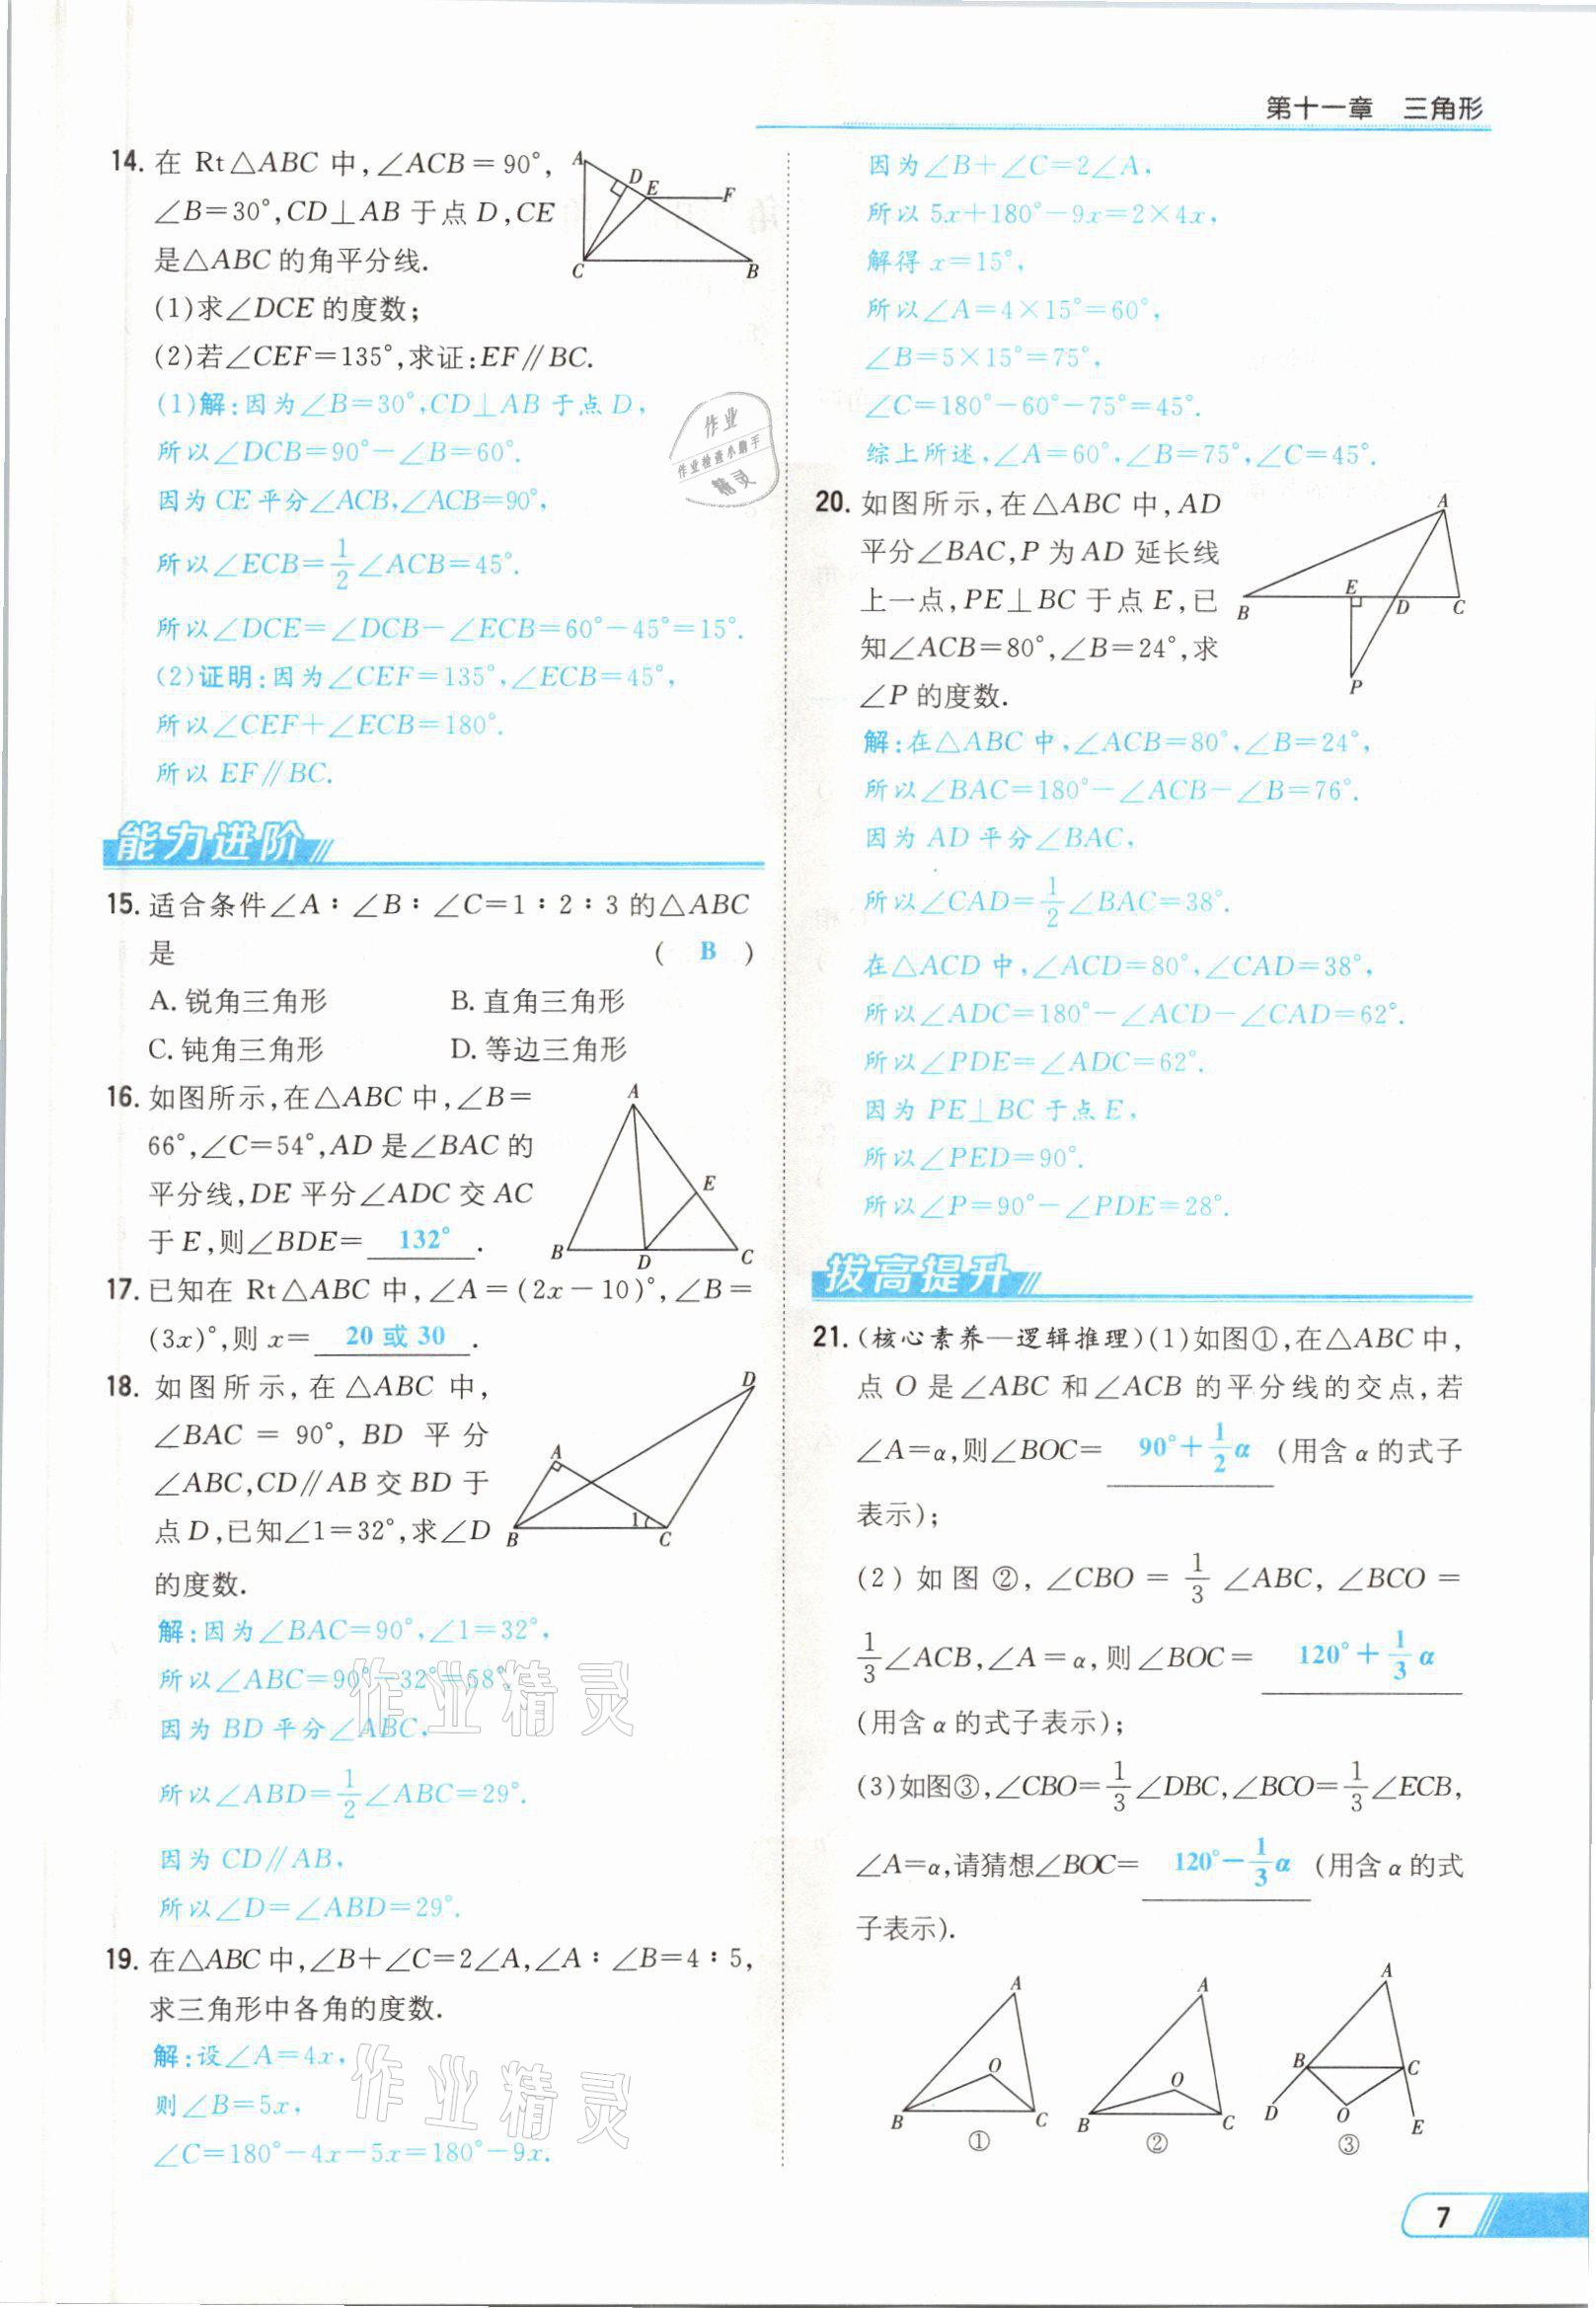 第十一章　三角形
14. 在 Rt△ABC 中,∠ACB=90°,
∠B=30°,CD⊥AB 于点 D,CE
是△ABC 的角平分线.
(1)求∠DCE 的度数;
(2)若∠CEF=135°,求证:EF∥BC.
A
D
E
F
C
B
(1)解:因为∠B=30°,CD⊥AB 于点 D,
所以∠DCB=90°-∠B=60°.
因为 CE 平分∠ACB,∠ACB=90°,
所以∠ECB=1/2∠ACB=45°.
所以∠DCE=∠DCB-∠ECB=60°-45°=15°.
(2)证明:因为∠CEF=135°,∠ECB=45°,
所以∠CEF+∠ECB=180°.
所以 EF∥BC.
作业
作业检查小助手
精灵
能力进阶
15. 适合条件∠A∶∠B∶∠C=1∶2∶3 的△ABC
是 ( B )
A. 锐角三角形 B. 直角三角形
C. 钝角三角形 D. 等边三角形
16. 如图所示,在△ABC 中,∠B=
66°,∠C=54°,AD 是∠BAC 的
平分线,DE 平分∠ADC 交 AC
于 E,则∠BDE= 132° .
A
E
B
D
C
17. 已知在 Rt△ABC 中,∠A=(2x-10)°,∠B=
(3x)°,则 x= 20 或 30 .
18. 如图所示,在△ABC 中,
∠BAC = 90°, BD 平分
∠ABC,CD∥AB 交 BD 于
点 D,已知∠1=32°,求∠D
的度数.
D
A
B
1
C
解:因为∠BAC=90°,∠1=32°,
所以∠ABC=90°-32°=58°.
因为 BD 平分∠ABC,
所以∠ABD=1/2∠ABC=29°.
因为 CD∥AB,
所以∠D=∠ABD=29°.
作业精灵
19. 在△ABC 中,∠B+∠C=2∠A,∠A∶∠B=4∶5,
求三角形中各角的度数.
解:设∠A=4x,
则∠B=5x,
∠C=180°-4x-5x=180°-9x.
作业精灵
因为∠B+∠C=2∠A,
所以 5x+180°-9x=2×4x,
解得 x=15°,
所以∠A=4×15°=60°,
∠B=5×15°=75°,
∠C=180°-60°-75°=45°.
综上所述,∠A=60°,∠B=75°,∠C=45°.
20. 如图所示,在△ABC 中,AD
平分∠BAC,P 为 AD 延长线
上一点,PE⊥BC 于点 E,已
知∠ACB=80°,∠B=24°,求
∠P 的度数.
A
E
B
D
C
P
解:在△ABC 中,∠ACB=80°,∠B=24°,
所以∠BAC=180°-∠ACB-∠B=76°.
因为 AD 平分∠BAC,
所以∠CAD=1/2∠BAC=38°.
在△ACD 中,∠ACD=80°,∠CAD=38°,
所以∠ADC=180°-∠ACD-∠CAD=62°.
所以∠PDE=∠ADC=62°.
因为 PE⊥BC 于点 E,
所以∠PED=90°.
所以∠P=90°-∠PDE=28°.
拔高提升
21. (核心素养—逻辑推理)(1)如图①,在△ABC 中,
点 O 是∠ABC 和∠ACB 的平分线的交点,若
∠A=α,则∠BOC= 90°+1/2α (用含 α 的式子
表示);
(2) 如图 ②, ∠CBO = 1/3 ∠ABC, ∠BCO =
1/3∠ACB,∠A=α,则∠BOC= 120°+1/3α
(用含 α 的式子表示);
(3)如图③,∠CBO=1/3∠DBC,∠BCO=1/3∠ECB,
∠A=α,请猜想∠BOC= 120°-1/3α (用含 α 的式
子表示).
A
O
B
C
①
A
O
B
C
②
A
B
C
D
O
E
③
7